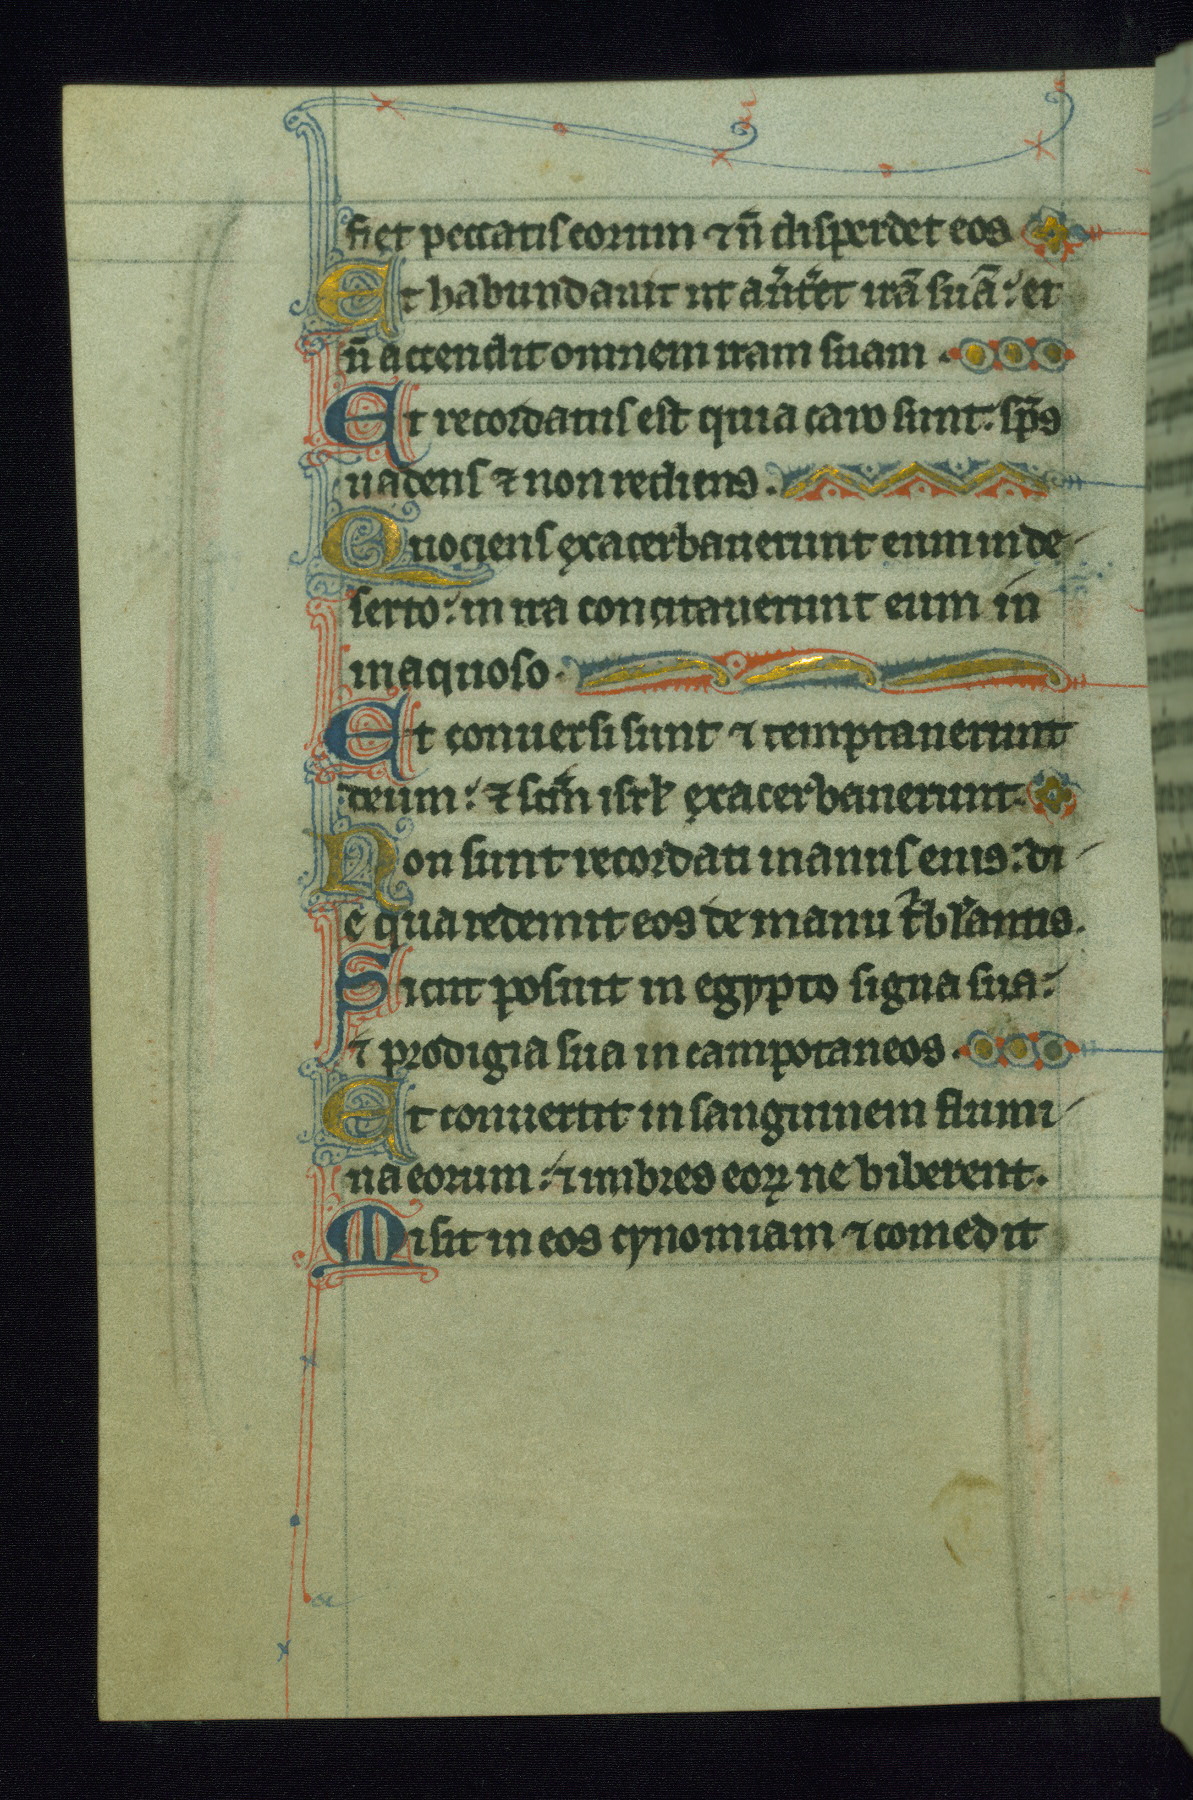 fiet peccatis eorum ⁊ n̄ disperdet eos
Et habundauit ut aũt̃et irā suā: et
n̄ accendit omnem iram suam.
Et recordatus est quia caro sunt: sp̄s
uadens ⁊ non rediens.
Quociens exacerbauerunt eum in de
serto: in ira concitauerunt eum in
inaquoso.
Et conuersi sunt ⁊ temptauerunt
deum: ⁊ sc̄m isrl̄ exacerbauerunt.
Non sunt recordati manus eius: di
e qua redemit eos de manu t̄bl̄antis.
Sicut posuit in egypto signa sua:
⁊ prodigia sua in campo taneos.
Et conuertit in sanguinem flumi
na eorum: ⁊ imbres eoꝝ ne biberent.
Misit in eos cynomiam ⁊ comedit